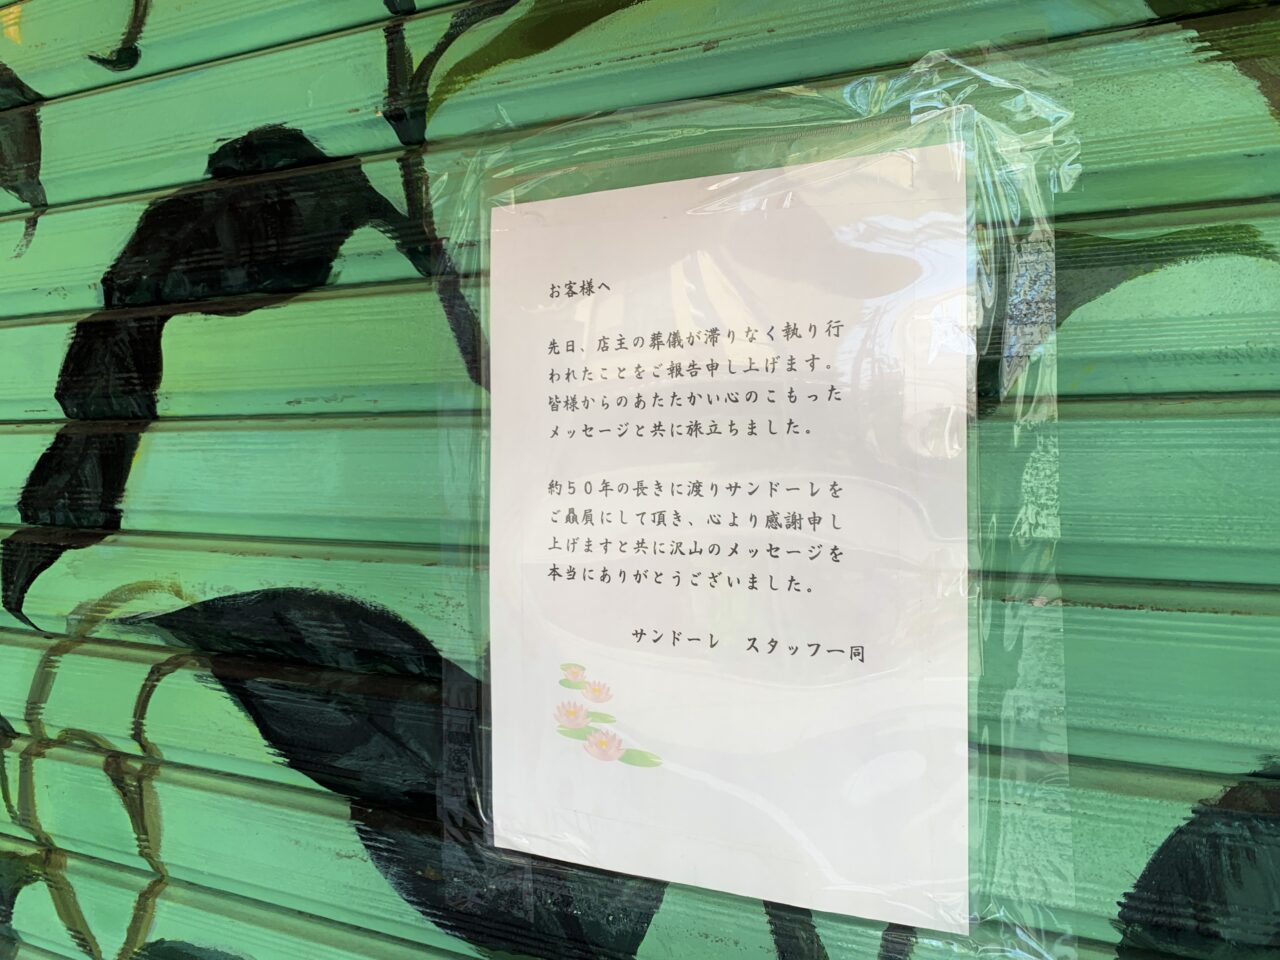 お客様へ
先日、店主の葬儀が滞りなく執り行
われたことをご報告申し上げます。
皆様からのあたたかい心のこもった
メッセージと共に旅立ちました。
約５０年の長きに渡りサンドーレを
ご贔屓にして頂き、心より感謝申し
上げますと共に沢山のメッセージを
本当にありがとうございました。
サンドーレ　スタッフ一同